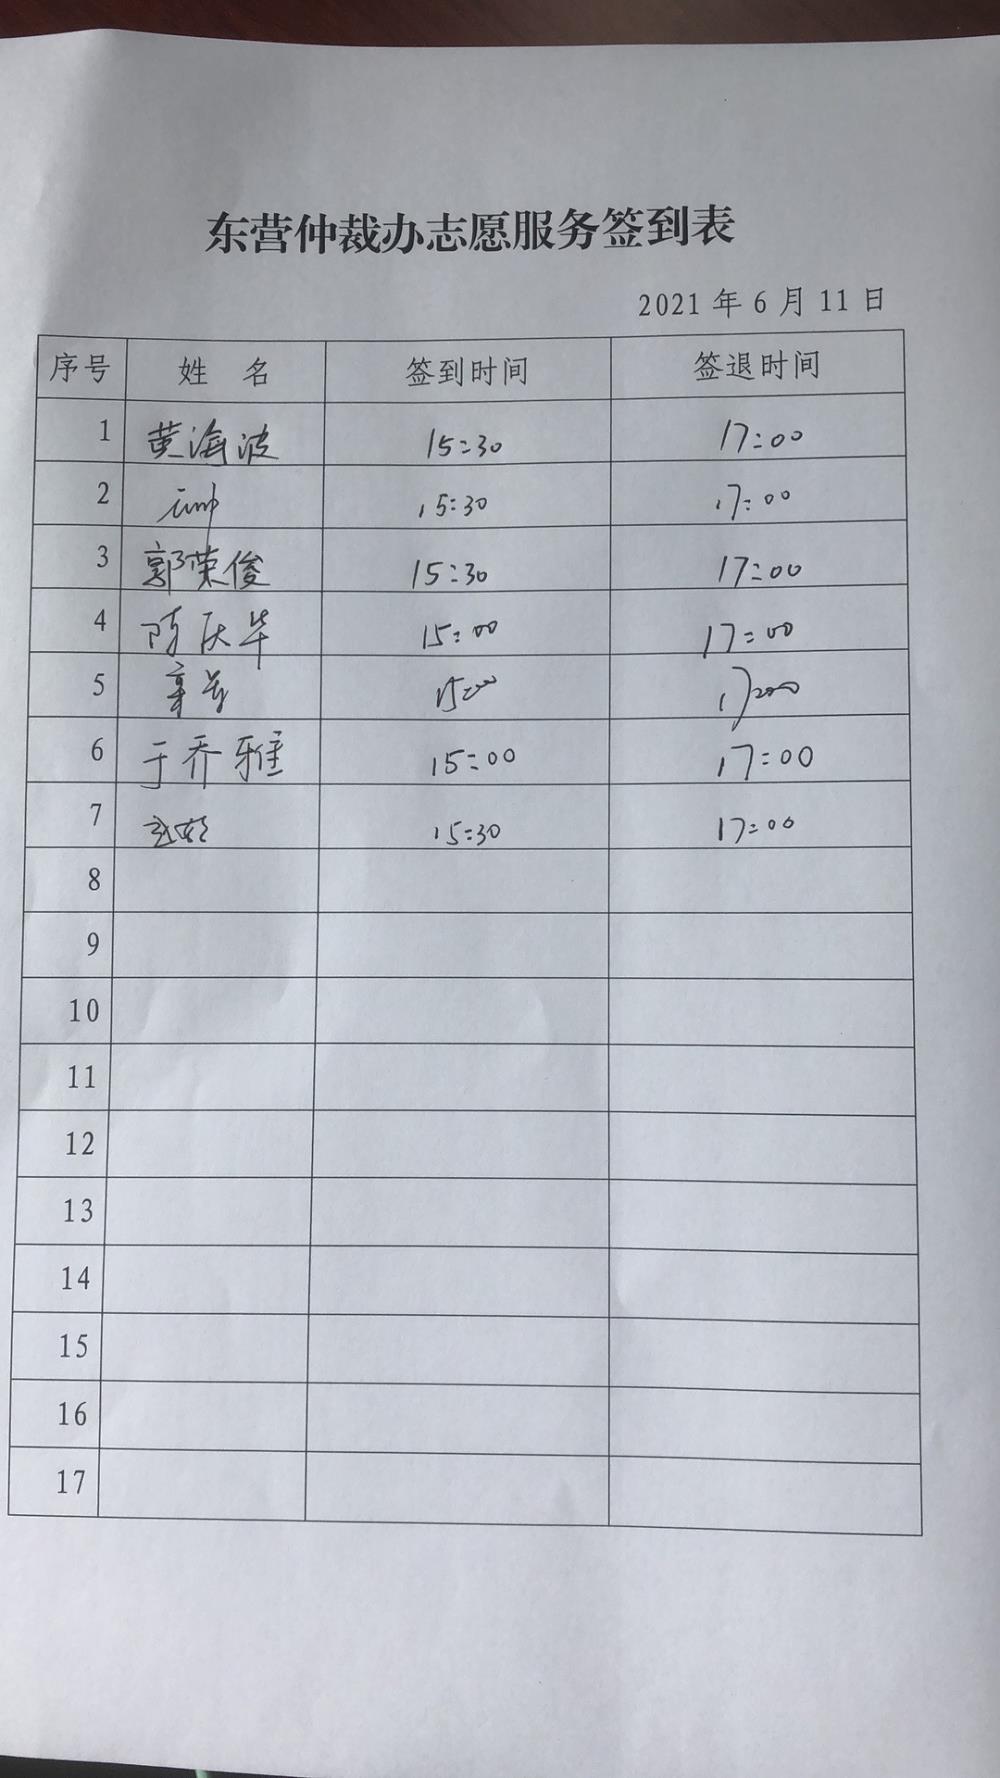 东营仲裁办志愿服务签到表
2021 年 6 月 11 日
序号 姓 名 签到时间 签退时间
1 黄海波 15:30 17:00
2 15:30 17:00
3 郭荣俊 15:30 17:00
4 陈庆华 15:00 17:00
5 15:00 17:00
6 于乔雅 15:00 17:00
7 15:30 17:00
8
9
10
11
12
13
14
15
16
17